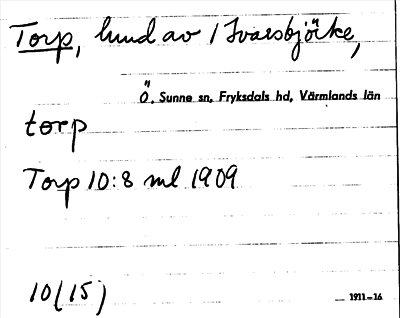 Torp, hmd av 1 Ivarsbjörke,
Ö. Sunne sn, Fryksdals hd, Värmlands län
torp
Torp 10:8 ml 1909
10(15)
1911-16